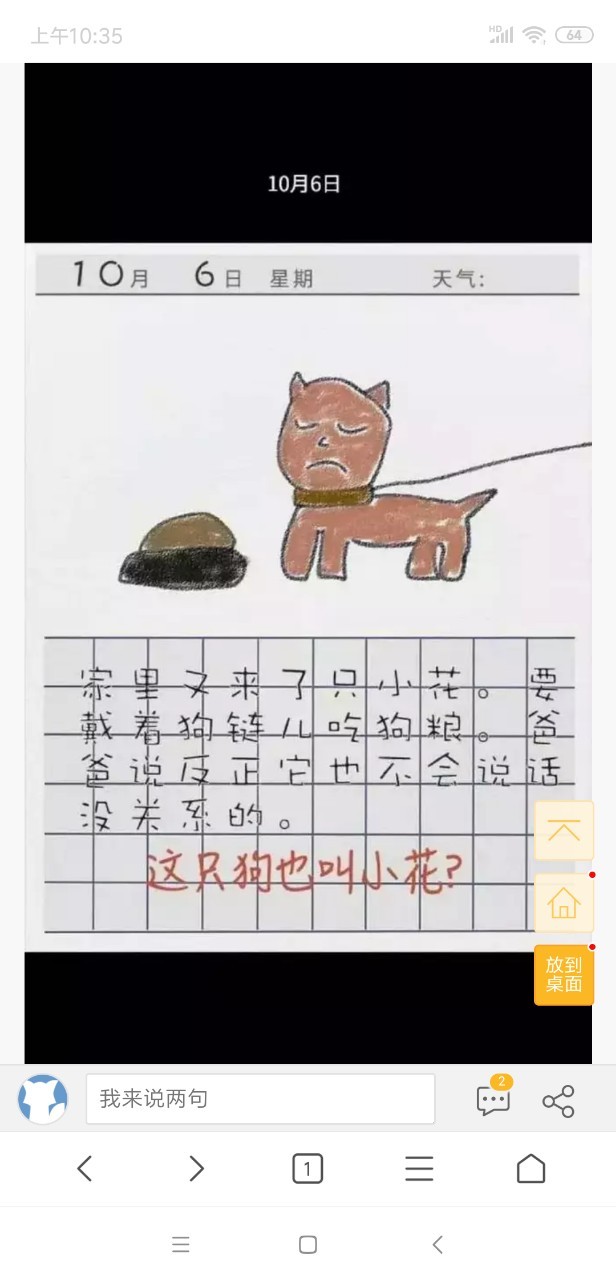 上午10:35
HD
64
10月6日
10月 6日 星期 天气:
家里又来了只小花。要
戴着狗链儿吃狗粮。爸
爸说反正它也不会说话
没关系的。
这只狗也叫小花?
放到
桌面
我来说两句
2
1